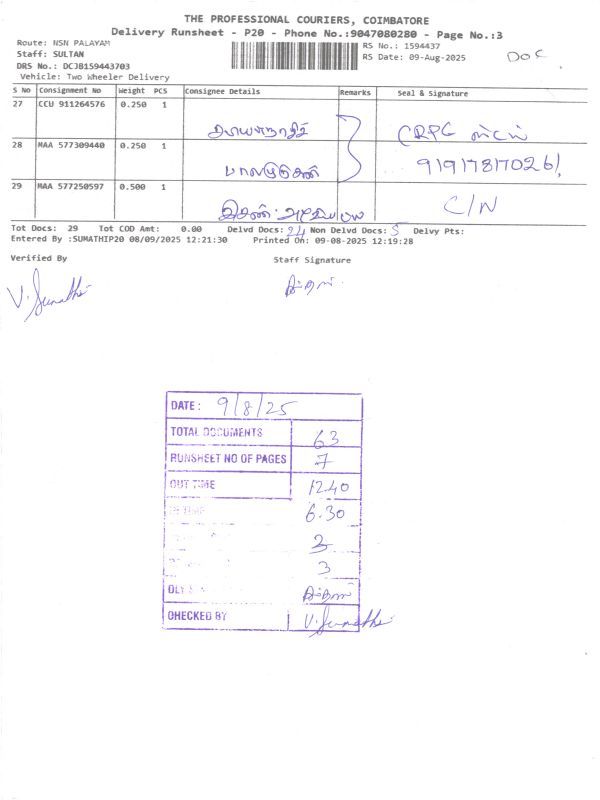 THE PROFESSIONAL COURIERS, COIMBATORE
Delivery Runsheet - P20 - Phone No.:9047080280 - Page No.:3
Route: NSN PALAYAM
Staff: SULTAN
DRS No.: DCJB159443703
Vehicle: Two Wheeler Delivery
RS No.: 1594437
RS Date: 09-Aug-2025
DOC
S No Consignment No Weight PCS Consignee Details Remarks Seal & Signature
27 CCU 911264576 0.250 1
28 MAA 577309440 0.250 1 919178170261
29 MAA 577250597 0.500 1 C/N
Tot Docs: 29 Tot COD Amt: 0.00 Delvd Docs: 24 Non Delvd Docs: 5 Delvy Pts:
Entered By :SUMATHIP20 08/09/2025 12:21:30 Printed On: 09-08-2025 12:19:28
Verified By Staff Signature
V. Sumathi
DATE: 9/8/25
TOTAL DOCUMENTS 63
RUNSHEET NO OF PAGES 7
OUT TIME 12.40
IN TIME 6.30
3
3
CHECKED BY V. Sumathi